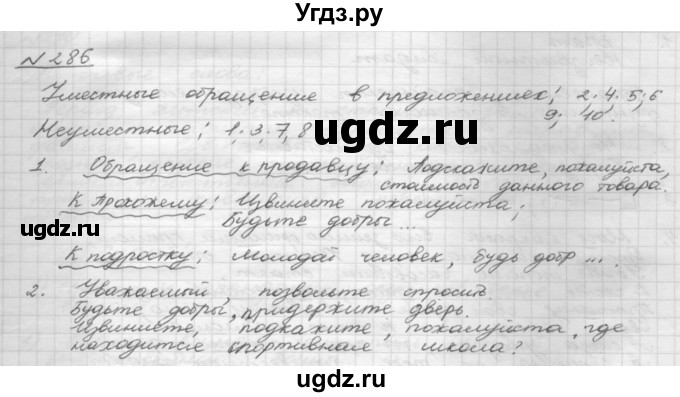 Угдз.ру
№ 286
Уместные обращение в предложениях; 2. 4. 5; 6
9; 10.
Неуместные; 1. 3. 7, 8
ugdz.ru
1. Обращение к продавцу; Подскажите, пожалуйста,
стоимость данного товара.
К Прохожему; Извините пожалуйста;
Будьте добры ...
ugdz.ru
К подростку; Молодай человек, будь добр ...
2. Уважаемый, позвольте спросить.
Будьте добры, придержите дверь.
Извините, подкажите, пожалуйста, где
находится спортивная школа?
ugdz.ru
ugdz.ru